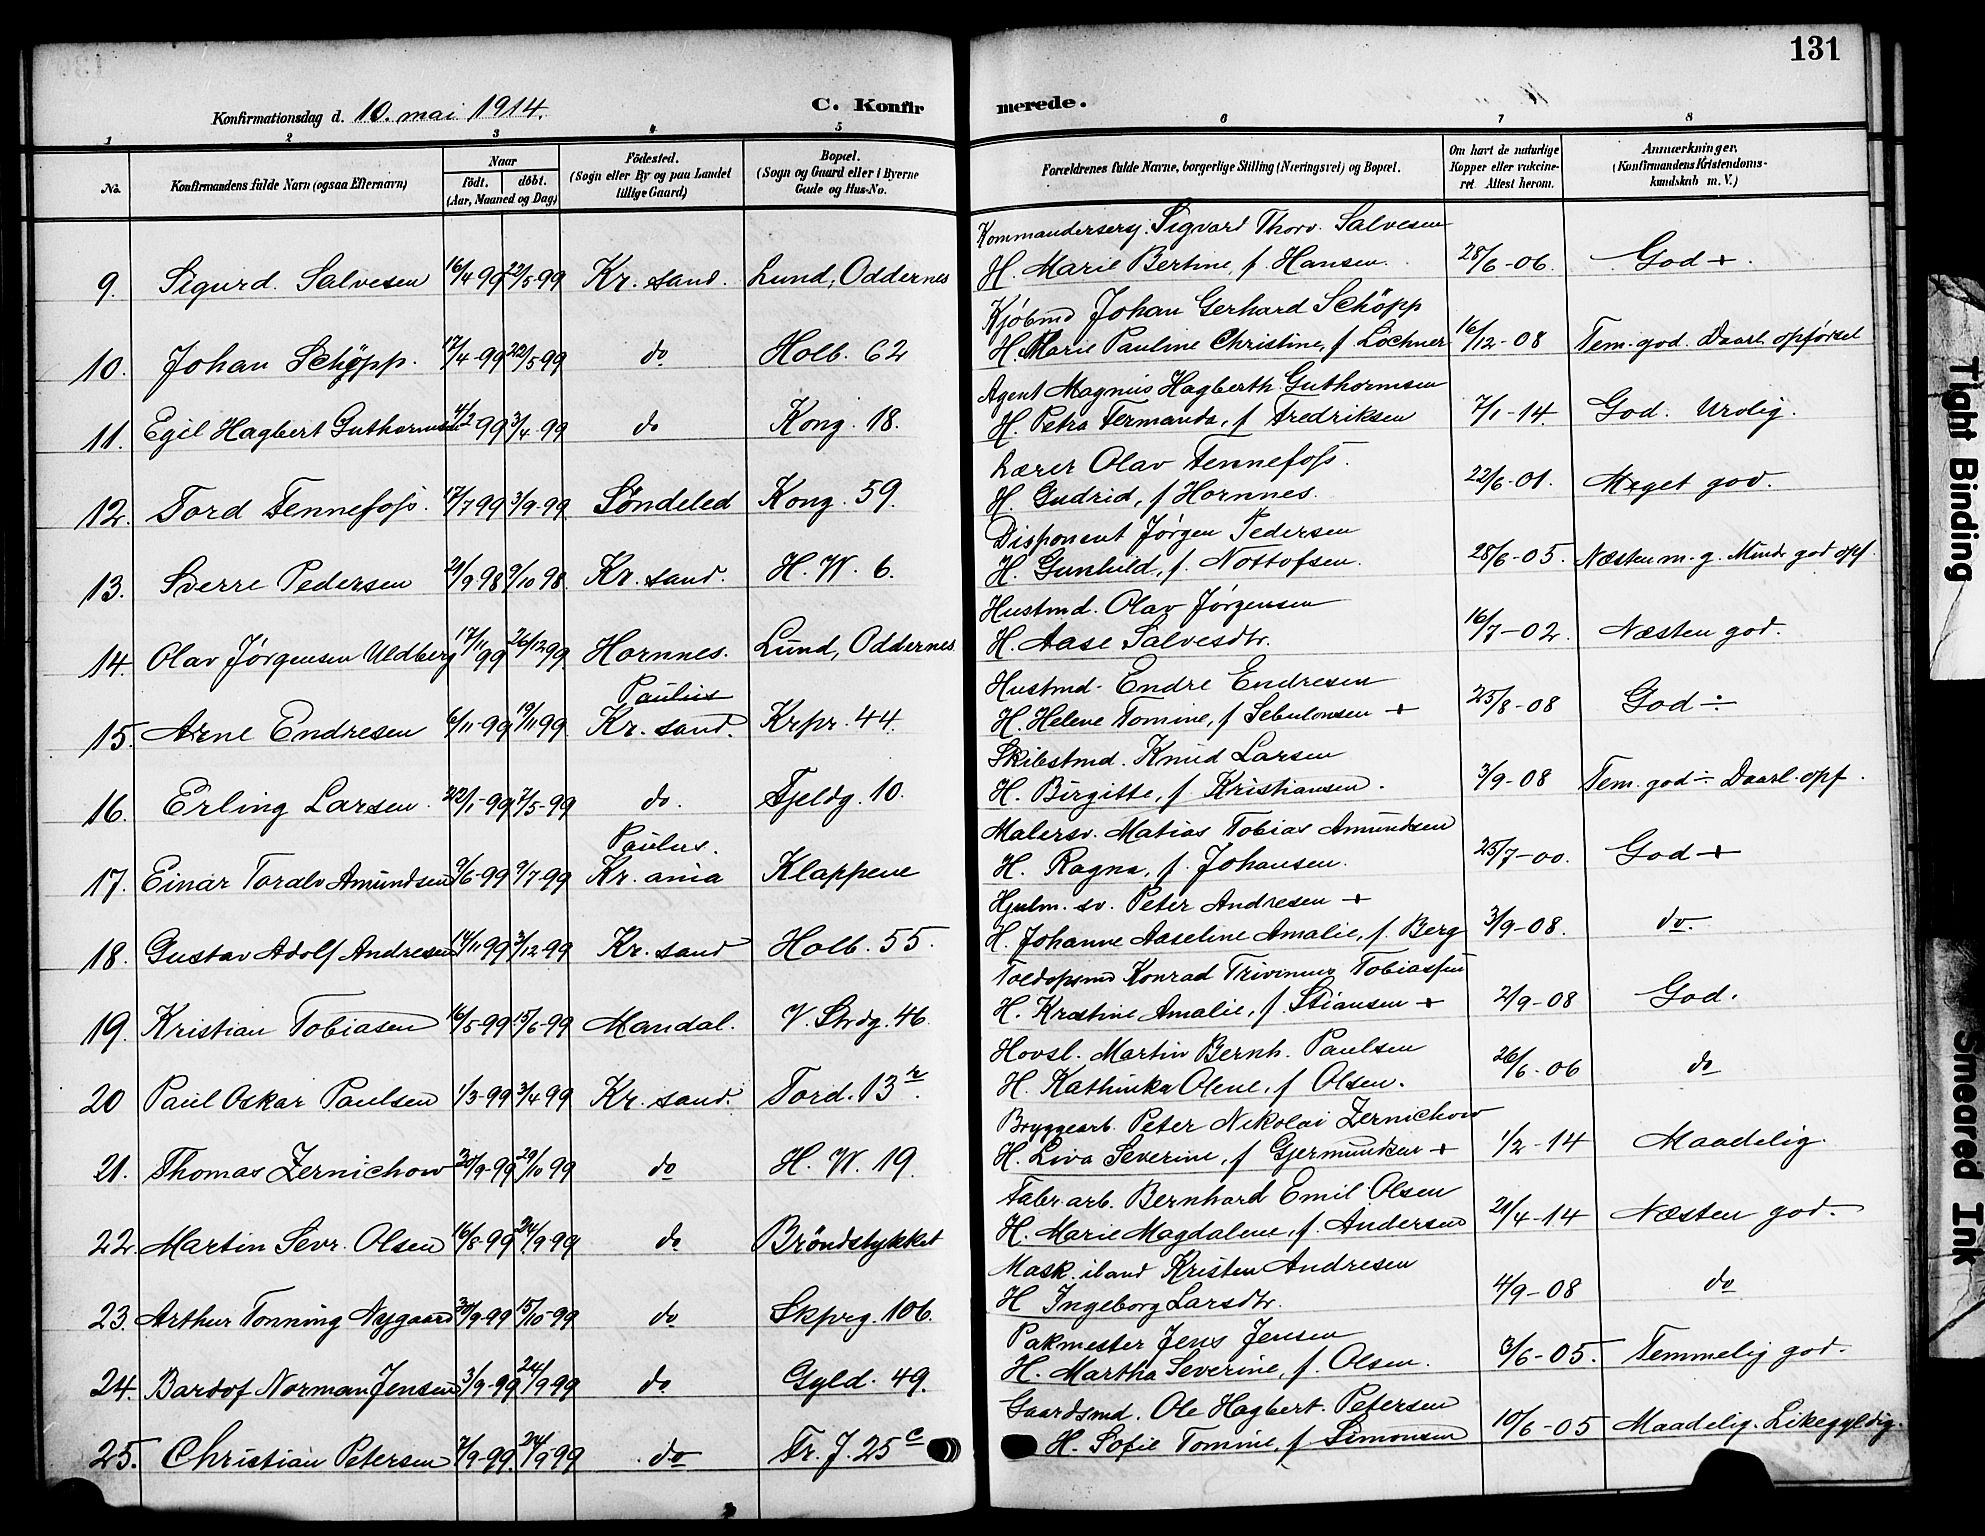 131
Konfirmationsdag d. 10. mai 1914.
C. Konfirmerede.
1 2 3 4 5 6 7 8
No. Konfirmandens fulde Navn (ogsaa Efternavn) Naar født. døbt. (Aar, Maaned og Dag) Fødested. (Sogn eller By og paa Landet tillige Gaard) Bopæl. (Sogn og Gaard eller i Byerne Gade og Hus-No. Forældrenes fulde Navne, borgerlige Stilling (Næringsvei) og Bopæl. Om havt de naturlige Kopper eller vakcineret. Attest herom. Anmærkninger. (Konfirmandens Kristendomskundskab m. V.)
Kommandersersj. Sigvard Thorv. Salvesen
9. Sigurd Salvesen 16/4-99 22/5-99 Kr. sand. Lund, Oddernes H. Marie Bertine, f. Hansen. 28/6-06. God +.
Kjøbmd Johan Gerhard Schöpp
10. Johan Schöpp. 17/4-99 22/5-99 do Holb. 62 H. Marie Pauline Christine, f. Lochner 16/12-08 Tem. god. Daarl. opførsel
Agent Magnus Hagberth Guthormsen
11. Egil Hagbert Guthormsen 4/2-99 3/4-99 do Kong. 18. H. Petra Fermanda, f. Fredriksen 7/1-14. God. Urolig.
Lærer Olav Tennefoss.
12. Tord Tennefoss. 17/7 99 3/9-99 Søndeled Kong. 59. H. Gudrid, f. Hornnes. 22/6-01. Meget god.
Disponent Jørgen Pedersen
13. Sverre Pedersen 21/9 98 9/10 98. Kr. sand. H. W. 6. H. Gunhild, f. Nottofsen. 28/6-05. Næsten m. g. Mindr god opf.
Hustmd. Olav Jørgensen
14. Olav Jørgensen Uldberg 17/11 99 26/12 99 Hornnes. Lund, Oddernes H. Aase Salvesdtr. 16/7-02. Næsten god.
Paulus
Hustmd. Endre Endresen
15. Arne Endresen 6/11-99 19/11 99 Kr. sand. Krpr. 44. H. Helene Tomine, f. Sebulonsen + 25/8-08 God ÷
Skibstmd. Knud Larsen
16. Erling Larsen. 22/1-99 7/5-99 do. Fjeldg. 10. H. Birgitte, f. Kristiansen. 3/9-08 Tem. god ÷ Daarl. opf.
Paulus.
Malersv. Matias Tobias Amundsen
17. Einar Toralv Amundsen 9/6-99 9/7-99 Kr. ania Klappene H. Ragna, f. Johansen. 25/7-00. God +
Hjulm. sv. Peter Andresen +
18. Gustav Adolf Andresen 14/11 99 3/12-99 Kr. sand Holb. 55. H. Johanne Aaseline Amalie, f. Berg 3/9-08. do.
Toldopsmd Konrad Trivinius Tobiassen
19. Kristian Tobiasen 16/5-99. 15/6-99 Mandal. V. Strdg. 46. H. Krestine Amalie, f. Stiansen + 2/9-08 God.
Hovsl. Martin Bernh. Paulsen
20 Paul Oskar Paulsen 1/3-99 3/4 99 Kr. sand. Tord. 13 r. H. Kathinka Olene, f. Olsen. 26/6-06 do
Bryggearb. Peter Nikolai Zernichow
21. Thomas Zernichow 30/9-99 29/10 99 do H. W. 19. H. Lova Severine, f. Gjermundsen + 1/2-14 Maadelig.
Fabr. arb. Bernhard Emil Olsen
22. Martin Sevr. Olsen 16/8-99 24/9-99 do Brøndstykket H. Marie Magdalene, f. Andersen 21/4-14 Næsten god.
Mask. iland Kristen Andresen
23. Arthur Tonning Nygaard 30/9-99 15/10-99 do Skprg. 106. H Ingeborg Larsdtr. 4/9-08 do
Pakmester Jens Jensen
24. Bardof Norman Jensen 3/9-99 24/9-99 do Gyld. 49. H. Martha Severine, f. Olsen. 3/6-05. Temmelig god.
Gaardsmd. Ole Hagbert Petersen
25. Christian Petersen 7/9-99. 24/9 99 do Tr. J. 25 c H. Sofie Tomine, f. Simonsen 10/6-05 Maadelig. Likegyldig.
Tight Binding
Smeared Ink